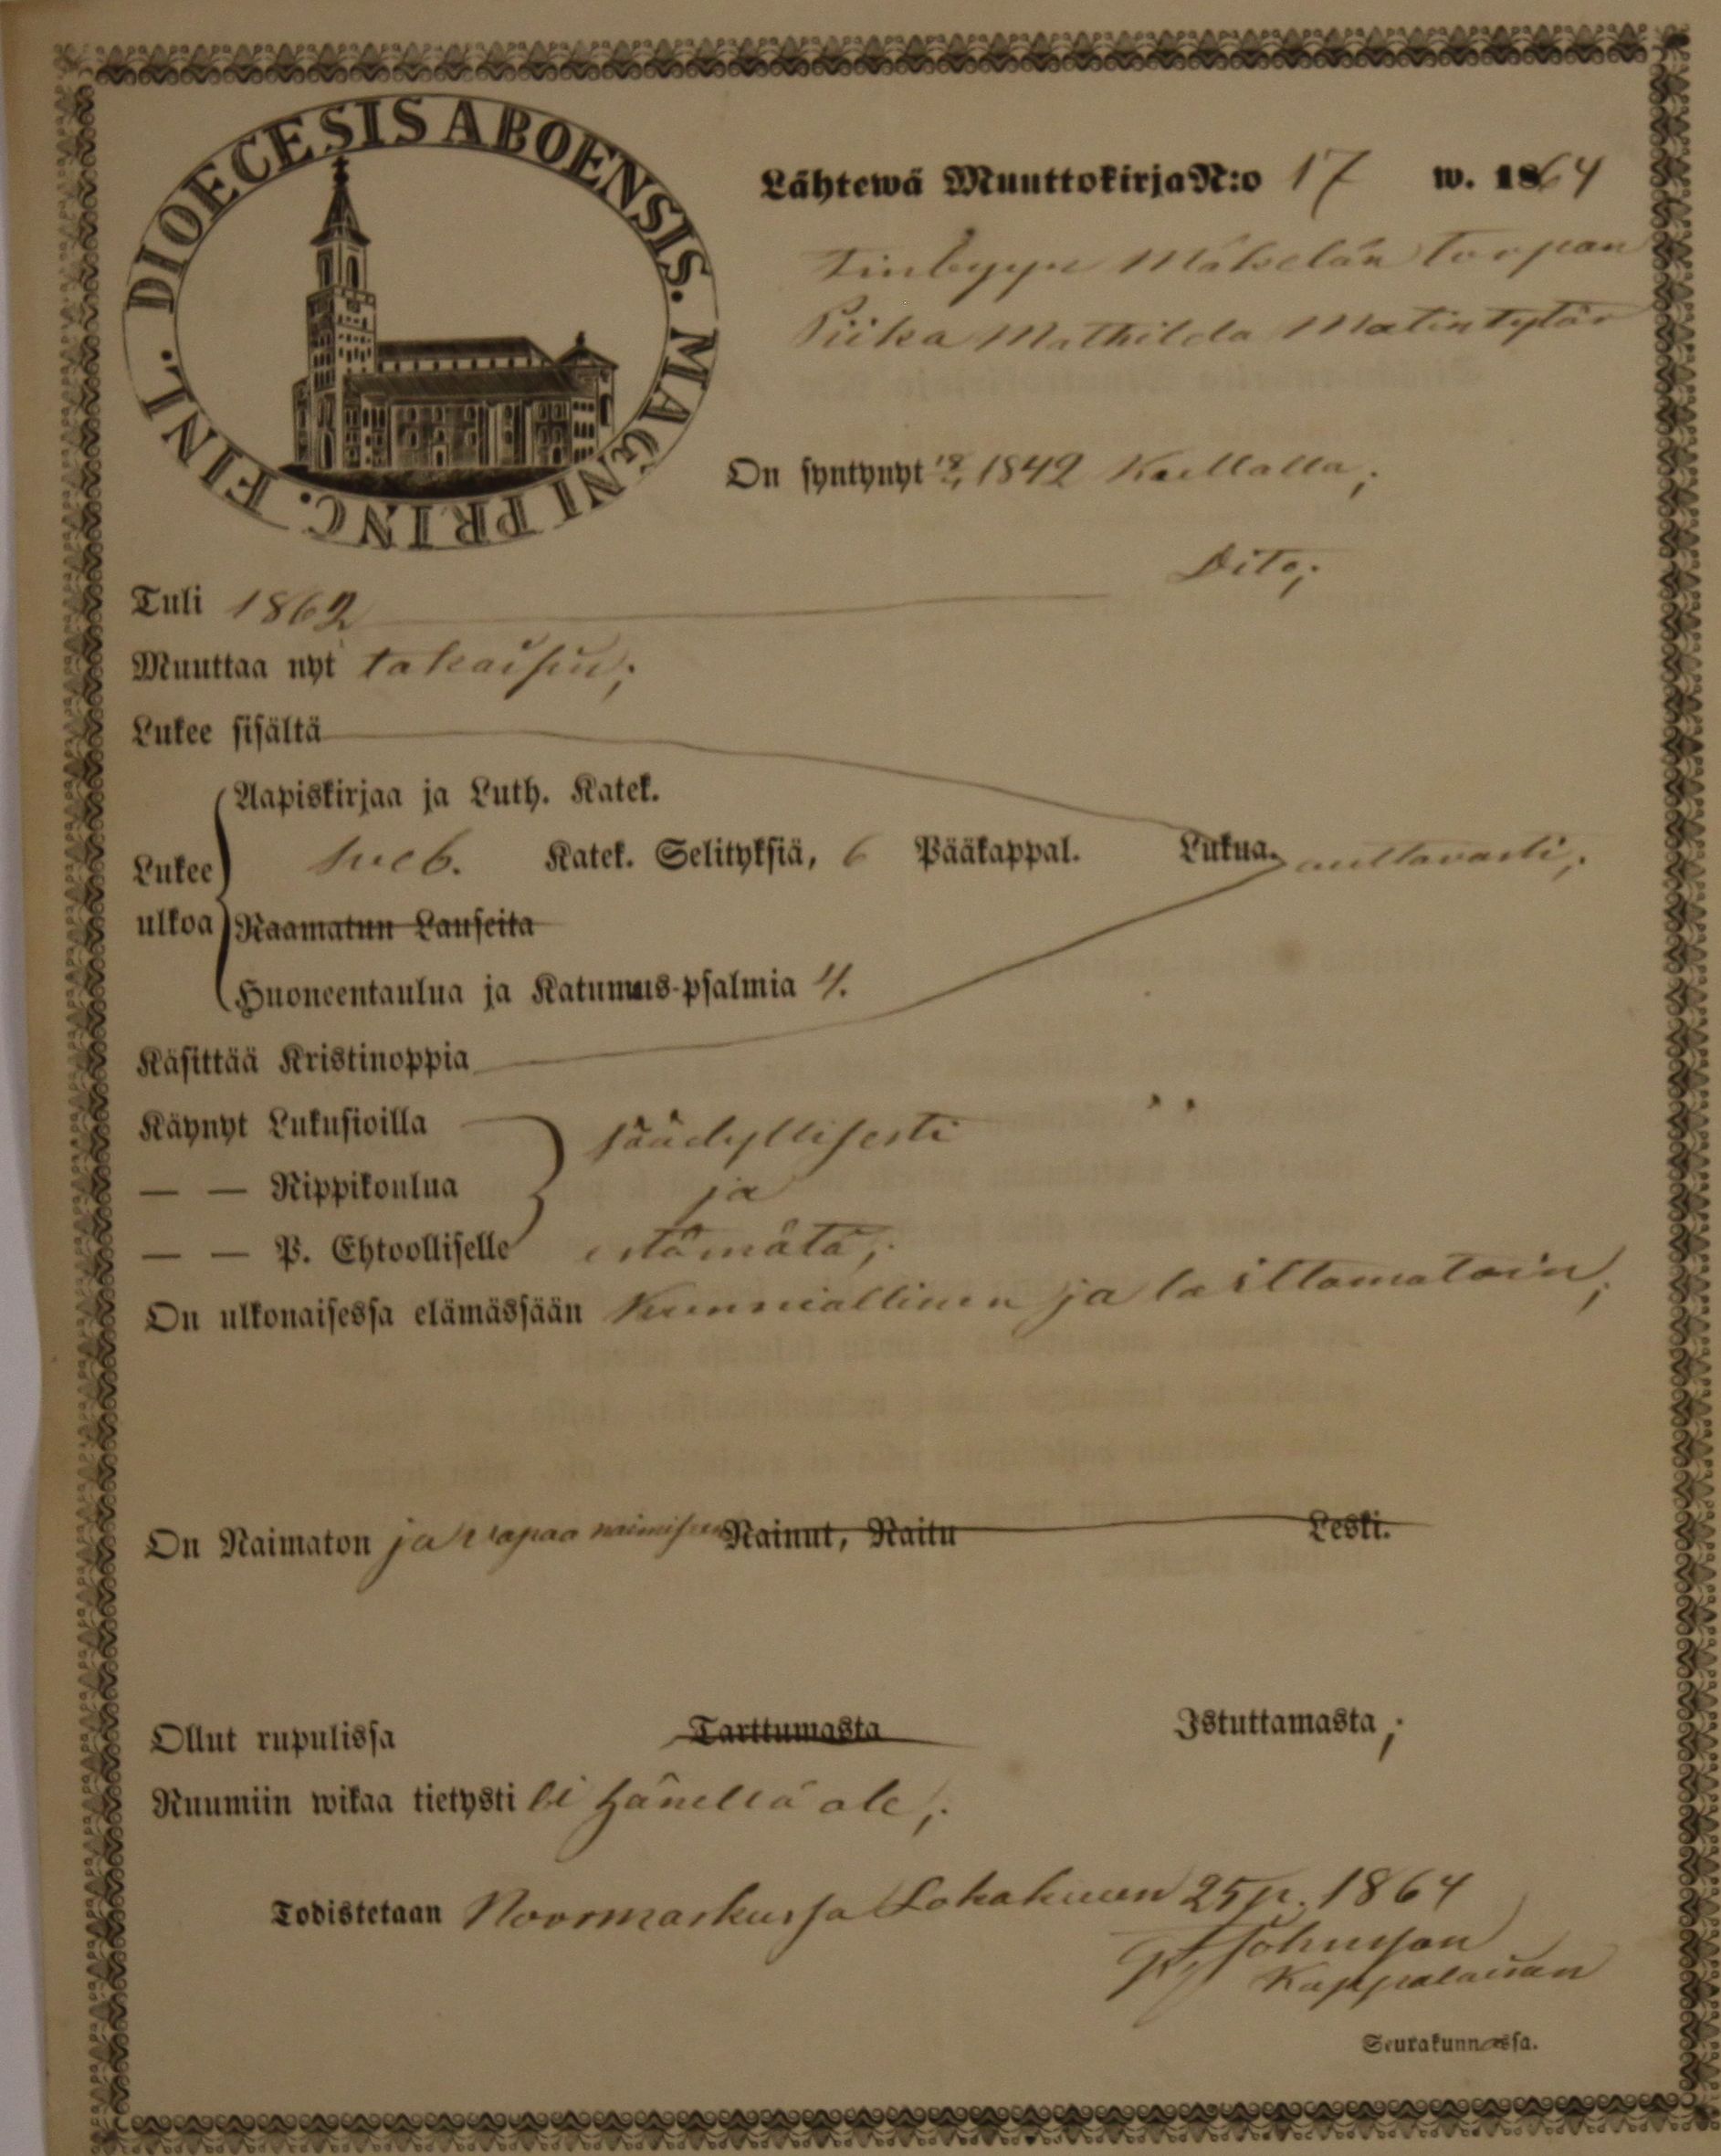 DIOECESIS ABOENSIS. MAGNI PRINC. FINL.
Lähtewä Muuttokirja N:o 17 w. 1864
Finbyyn Mäkelän torpan
Piika Mathilda Matintytär
On syntynyt 1842 Kullalla;
Dito;
Tuli 1862
Muuttaa nyt takaisin;
Lukee sisältä
Aapiskirjaa ja Luth. Katek.
Lukee ulkoa
Sveb. Katek. Selityksiä, 6 Pääkappal. Lukua. auttavasti;
Raamatun Lauseita
Huoneentaulua ja Katumus-psalmia 4.
Käsittää Kristinoppia
Käynyt Lukusioilla säädyllisesti
— — Rippikoulua ja
— — P. Ehtoolliselle estämätä;
On ulkonaisessa elämässään Kunniallinen ja laittamatoin;
On Naimaton ja vapaa naimiseen Nainut, Naitu Leski.
Ollut rupulissa Tarttumasta Istuttamasta;
Ruumiin wikaa tietysti ei hänellä ole;
Todistetaan Noormarkussa Lokakuun 25 p. 1864
Johnsson
Kappalainen
Seurakunnassa.